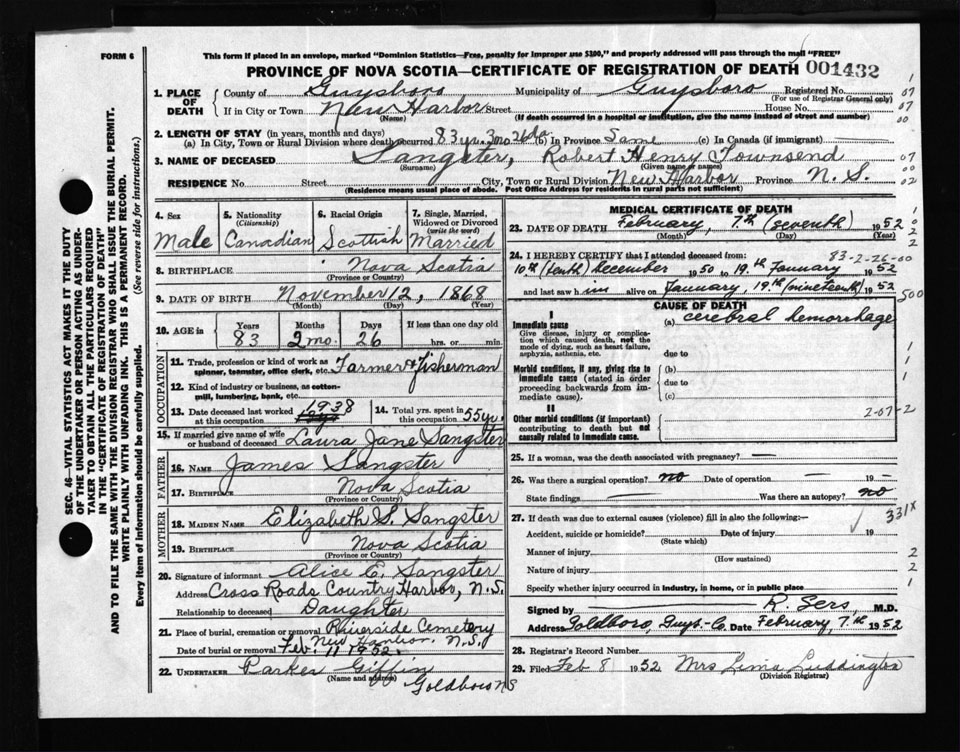 This form if placed in an envelope, marked "Dominion Statistics—Free, penalty for improper use $300," and properly addressed will pass through the mail "FREE"
FORM 6
PROVINCE OF NOVA SCOTIA—CERTIFICATE OF REGISTRATION OF DEATH 001432
SEC. 46—VITAL STATISTICS ACT MAKES IT THE DUTY
OF THE UNDERTAKER OR PERSON ACTING AS UNDER-
TAKER TO OBTAIN ALL THE PARTICULARS REQUIRED
IN THE "CERTIFICATE OF REGISTRATION OF DEATH"
AND TO FILE THE SAME WITH THE DIVISION REGISTRAR WHO SHALL ISSUE THE BURIAL PERMIT.
WRITE PLAINLY WITH UNFADING INK. THIS IS A PERMANENT RECORD.
Every item of information should be carefully supplied. (See reverse side for instructions.)
1. PLACE OF DEATH County of Guysboro Municipality of Guysboro Registered No. 07
(For use of Registrar General only)
If in City or Town New Harbor Street House No. 07
(Name) (If death occurred in a hospital or institution, give the name instead of street and number) 00
2. LENGTH OF STAY (in years, months and days)
(a) In City, Town or Rural Division where death occurred 83 yrs. 2mo. 26da (b) In Province Same (c) In Canada (if immigrant)
3. NAME OF DECEASED Sangster, Robert Henry Townsend 07
(Surname) (Given name or names) 00
RESIDENCE No. Street City, Town or Rural Division New Harbor Province N. S. 02
(Residence means usual place of abode. Post Office Address for residents in rural parts not sufficient)
4. Sex Male
5. Nationality (Citizenship) Canadian
6. Racial Origin Scottish
7. Single, Married, Widowed or Divorced (write the word) Married
8. BIRTHPLACE Nova Scotia
(Province or Country)
9. DATE OF BIRTH November 12, 1868
(Month) (Day) (Year)
10. AGE in Years Months Days If less than one day old
83 2 mo. 26 hrs. or min.
OCCUPATION
11. Trade, profession or kind of work as spinner, teamster, office clerk, etc. Farmer & Fisherman
12. Kind of industry or business, as cotton-mill, lumbering, bank, etc.
13. Date deceased last worked at this occupation 1938
14. Total yrs. spent in this occupation 55 yrs
15. If married give name of wife or husband of deceased Laura Jane Sangster
FATHER
16. NAME James Sangster
17. Birthplace Nova Scotia
(Province or Country)
MOTHER
18. MAIDEN NAME Elizabeth S. Sangster
19. BIRTHPLACE Nova Scotia
(Province or Country)
20. Signature of informant Alice E. Sangster
Address Cross Roads Country Harbor, N.S.
Relationship to deceased Daughter
21. Place of burial, cremation or removal Riverside Cemetery
New Harbor N.S.
Date of burial or removal Feb. 11 1952.
22. UNDERTAKER Parker Giffin
(Name and address) Goldboro NS
MEDICAL CERTIFICATE OF DEATH
23. DATE OF DEATH February, 7th (seventh) 1952
(Month) (Day) (Year)
83-2-26-00
24. I HEREBY CERTIFY that I attended deceased from:
10th (tenth) December 1950 to 19th January 1952
and last saw him alive on January, 19th (nineteenth) 1952
500
CAUSE OF DEATH
I
Immediate cause (a) cerebral hemorrhage
Give disease, injury or complication which caused death, not the mode of dying, such as heart failure, asphyxia, asthenia, etc. due to
Morbid conditions, if any, giving rise to immediate cause (stated in order proceeding backwards from immediate cause). (b)
due to
(c)
II
Other morbid conditions (if important) contributing to death but not causally related to immediate cause.
2-07-2
25. If a woman, was the death associated with pregnancy? —
26. Was there a surgical operation? no Date of operation — 19 —
State findings — Was there an autopsy? no
27. If death was due to external causes (violence) fill in also the following:— 331x
Accident, suicide or homicide? Date of injury 19
(State which)
Manner of injury 2
(How sustained)
Nature of injury 2
Specify whether injury occurred in industry, in home, or in public place 1
Signed by R. Sers, M.D.
Address Goldboro, Guys.-Co. Date February, 7th 1952
28. Registrar's Record Number
29. Filed Feb 8 1952 Mrs Lima Luddington
(Division Registrar)